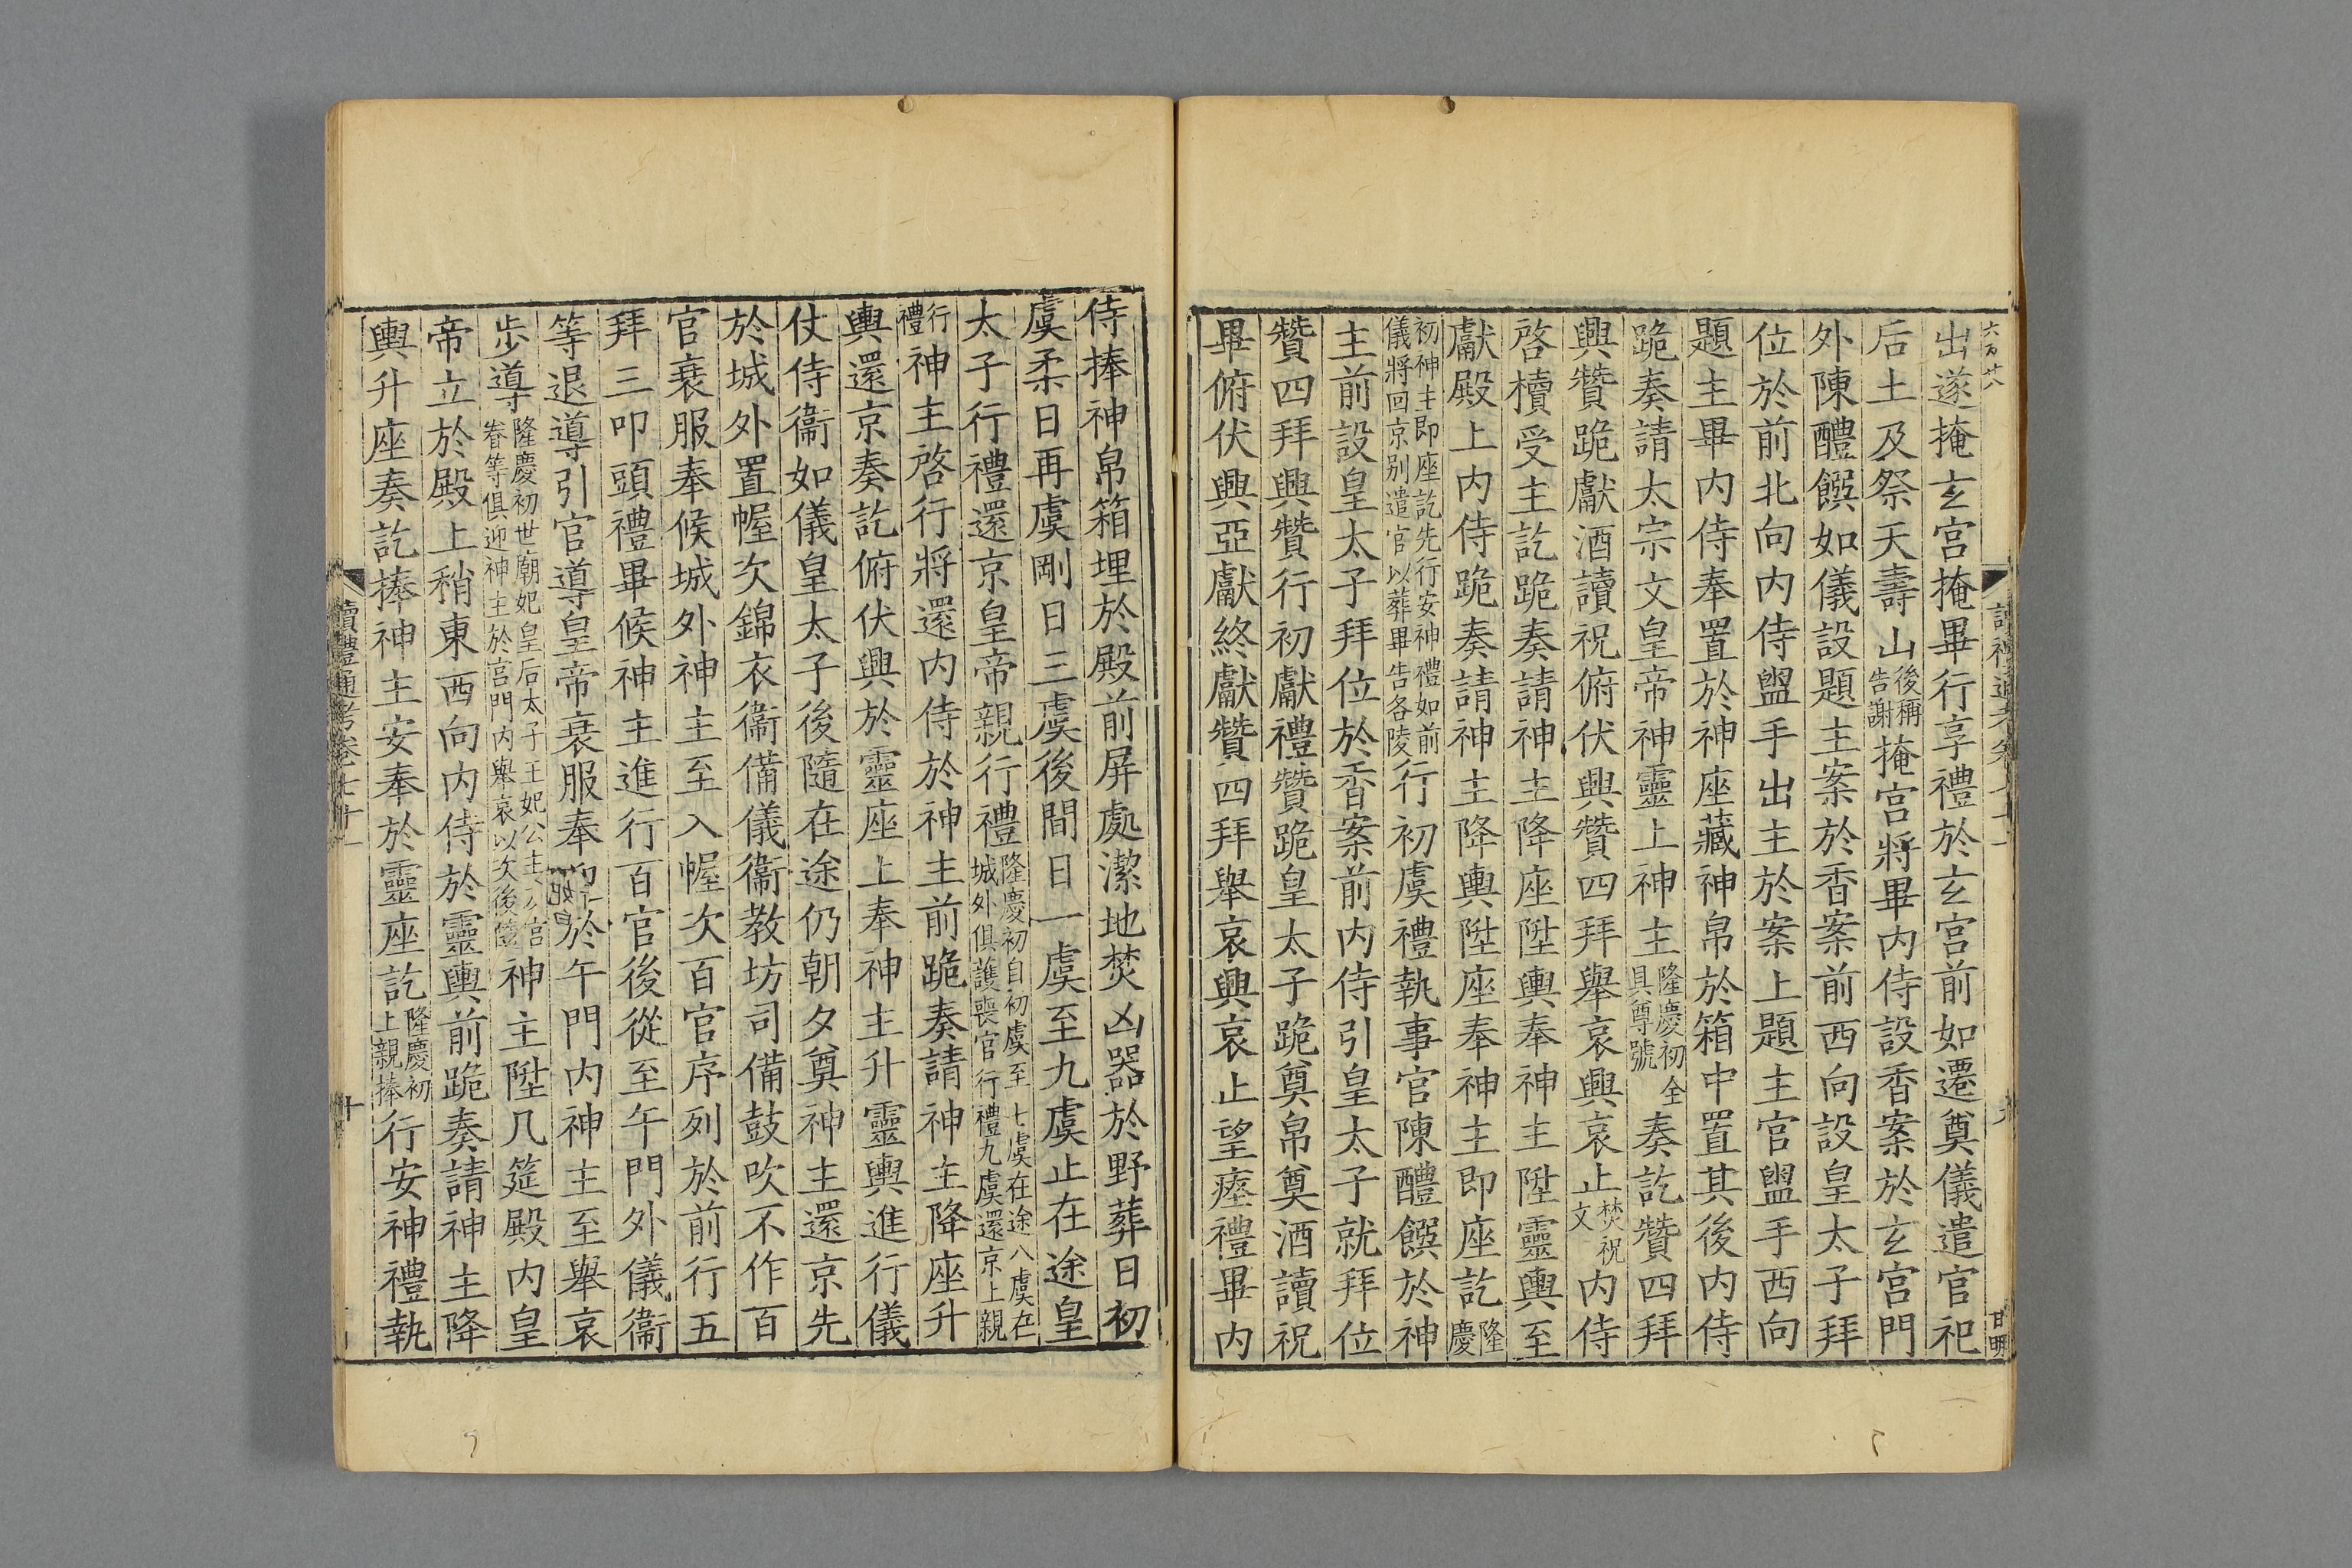 出遂掩玄宮掩畢行享禮於玄宮前如遷奠儀遣官祀
后土及祭天壽山後稱告謝掩宮將畢內侍設香案於玄宮門
外陳醴饌如儀設題主案於香案前西向設皇太子拜
位於前北向內侍盥手出主於案上題主官盥手西向
題主畢內侍奉置於神座藏神帛於箱中置其後內侍
跪奏請太宗文皇帝神靈上神主隆慶初全具尊號奏訖贊四拜
興贊跪獻酒讀祝俯伏興贊四拜舉哀興哀止焚祝文內侍
啓櫝受主訖跪奏請神主降座陞輿奉神主陞靈輿至
獻殿上內侍跪奏請神主降輿陞座奉神主即座訖隆慶
初神主即座訖先行安神禮如前儀將回京别遣官以葬畢告各陵行初虞禮執事官陳醴饌於神
主前設皇太子拜位於香案前內侍引皇太子就拜位
贊四拜興贊行初獻禮贊跪皇太子跪奠帛奠酒讀祝
畢俯伏興亞獻終獻贊四拜舉哀興哀止望瘞禮畢內
甘明
侍捧神帛箱埋於殿前屏處潔地焚凶器於野葬日初
虞柔日再虞剛日三虞後間日一虞至九虞止在途皇
太子行禮還京皇帝親行禮隆慶初自初虞至七虞在途八虞在城外俱護喪官行禮九虞還京上親
行禮神主啓行將還內侍於神主前跪奏請神主降座升
輿還京奏訖俯伏興於靈座上奉神主升靈輿進行儀
仗侍衞如儀皇太子後隨在途仍朝夕奠神主還京先
於城外置幄次錦衣衞備儀衞教坊司備鼓吹不作百
官衰服奉候城外神主至入幄次百官序列於前行五
拜三叩頭禮畢候神主進行百官後從至午門外儀衞
等退導引官導皇帝衰服奉迎於午門內神主至舉哀
步導隆慶初世廟妃皇后太子王妃公主六宮眷等俱迎神主於宮門內舉哀以次後隨神主陞几筵殿內皇
帝立於殿上稍東西向內侍於靈輿前跪奏請神主降
輿升座奏訖捧神主安奉於靈座訖隆慶初上親捧行安神禮執
讀禮通考卷七十一
十